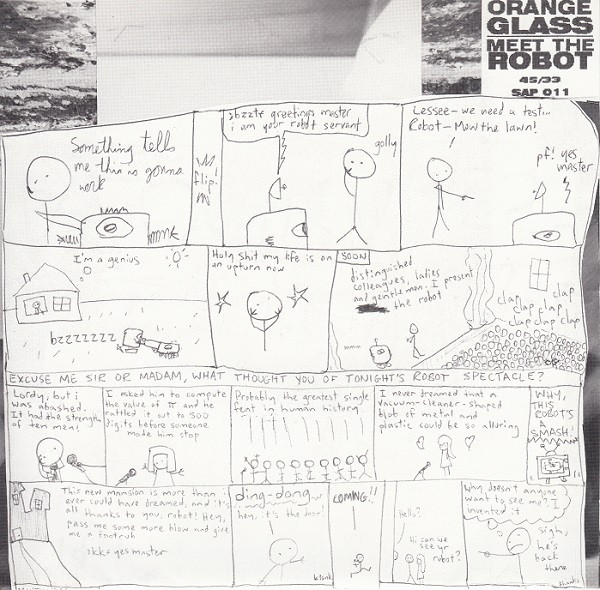 ORANGE
GLASS
MEET THE
ROBOT
45/33
SAP 011
Something tells
me this is gonna
work
flip!
sbzzt greetings master
i am your robot servant
golly
Lessee - we need a test...
Robot - Mow the lawn!
pf! yes
master
I'm a genius
bzzzzzzz
Holy shit my life is on
an upturn now
SOON
distinguished
colleagues, ladies
and gentlemen. I present
the robot
clap
clap clap
clap clap
clap clap clap
EXCUSE ME SIR OR MADAM, WHAT THOUGHT YOU OF TONIGHT'S ROBOT SPECTACLE?
Lordy, but i
was abashed.
It had the strength
of ten men!
I asked him to compute
the value of π and he
rattled it out to 500
digits before someone
made him stop
Probably the greatest single
feat in human history
I never dreamed that a
vacuum cleaner-shaped
blob of metal and
plastic could be so alluring
WHY,
THIS
ROBOT'S
A
SMASH!
This new mansion is more than i
ever could have dreamed, and it's
all thanks to you, robot! Hey,
pass me some more blow and give
me a footrub
skk+ yes master
ding-dong
hey, it's the door!
COMING!!
Hello?
Hi can we
see yr
robot?
Why doesn't anyone
want to see me? I
invented it
sigh,
he's
back
there
thanks